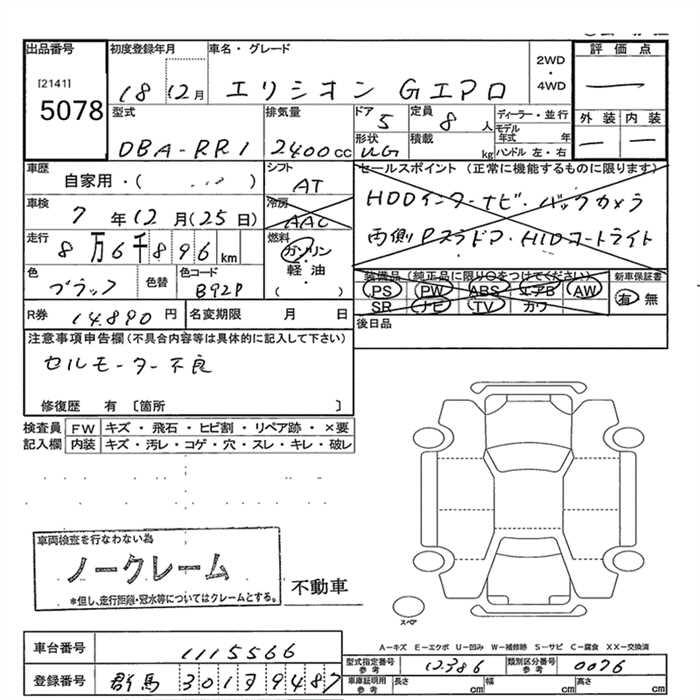 出品番号 初度登録年月 車名・グレード 評価点
[2141]
5078
18 12月 エリシオン Gエアロ 2WD・4WD
外装 内装
型式 排気量 ドア 定員 ディーラー・並行
DBA-RR1 2400cc 5 8人 モデル年式 年
形状 積載 ハンドル 左・右
UG kg
車歴 シフト セールスポイント (正常に機能するものに限ります)
自家用・( ) AT
HDDインターナビ・バックカメラ
車検 冷房
7年12月(25日) AAC
両側Pスラドア・HIDコートライト
走行 燃料
8万6千896km ガソリン
軽油
( )
色 色替 色コード 装備品 (純正品に限り〇をつけてください) 新車保証書
ブラック B92P PS PW ABS エアB AW 有 無
SR ナビ TV カワ
R券 14.890円 名変期限 月 日
後日品
注意事項申告欄 (不具合内容等は具体的に記入して下さい)
セルモーター不良
修復歴 有 〔箇所 〕
検査員 FW キズ・飛石・ヒビ割・リペア跡・×要
記入欄 内装 キズ・汚レ・コゲ・穴・スレ・キレ・破レ
車両検査を行なわない為
ノークレーム
*但し、走行距離・冠水等についてはクレームとする。
不動車
スペア
A−キズ E−エクボ U−凹み W−補修跡 S−サビ C−腐食 XX−交換済
車台番号 1115566
型式指定番号 参考 12386 類別区分番号 参考 0076
登録番号 群馬 301 ヲ 9487
車庫証明用 参考 長さ cm 幅 cm 高さ cm